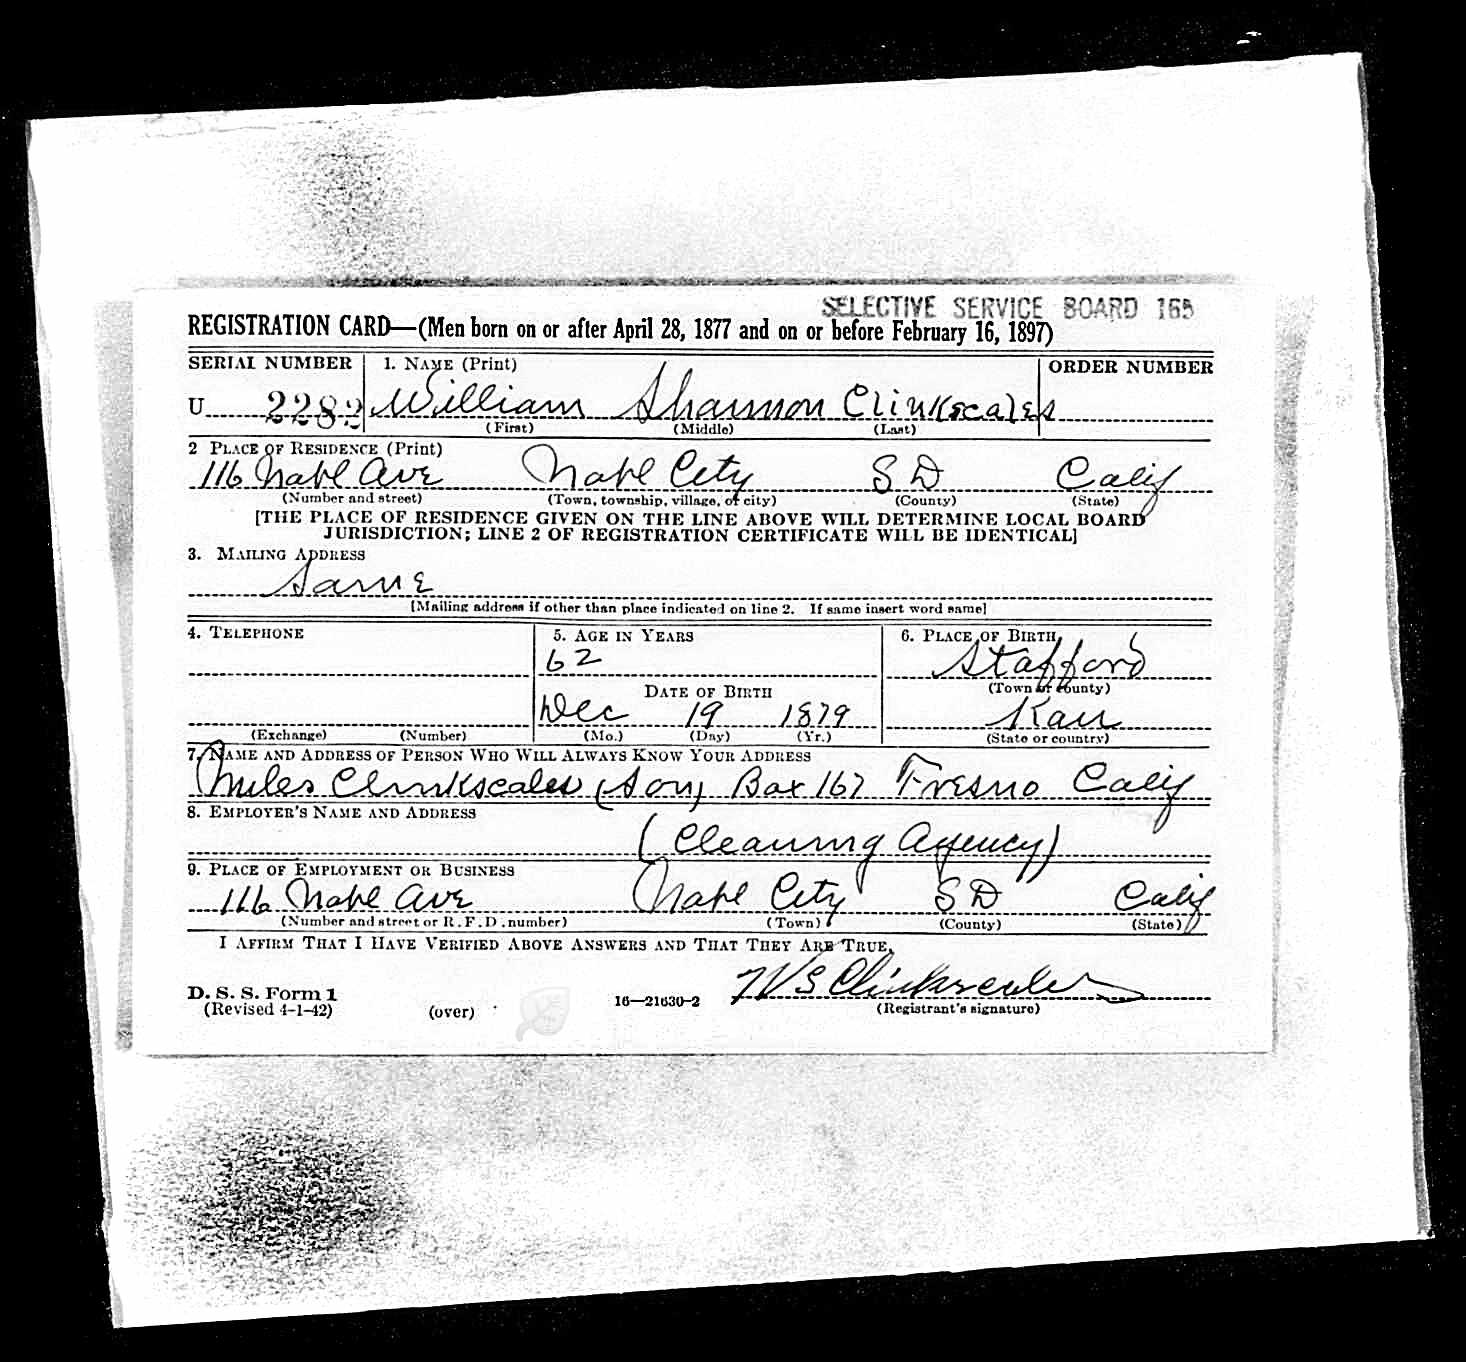 SELECTIVE SERVICE BOARD 165
REGISTRATION CARD—(Men born on or after April 28, 1877 and on or before February 16, 1897)
SERIAL NUMBER 1. NAME (Print) ORDER NUMBER
U 2282 William Shannon Clinkscales
(First) (Middle) (Last)
2 PLACE OF RESIDENCE (Print)
116 Natl Ave Natl City S D Calif
(Number and street) (Town, township, village, or city) (County) (State)
[THE PLACE OF RESIDENCE GIVEN ON THE LINE ABOVE WILL DETERMINE LOCAL BOARD
JURISDICTION; LINE 2 OF REGISTRATION CERTIFICATE WILL BE IDENTICAL]
3. MAILING ADDRESS
Same
[Mailing address if other than place indicated on line 2. If same insert word same]
4. TELEPHONE 5. AGE IN YEARS 6. PLACE OF BIRTH
62 Stafford
DATE OF BIRTH (Town or county)
Dec 19 1879 Kan
(Exchange) (Number) (Mo.) (Day) (Yr.) (State or country)
7. NAME AND ADDRESS OF PERSON WHO WILL ALWAYS KNOW YOUR ADDRESS
Miles Clinkscales (Son) Box 167 Fresno Calif
8. EMPLOYER'S NAME AND ADDRESS
(Cleaning Agency)
9. PLACE OF EMPLOYMENT OR BUSINESS
116 Natl Ave Natl City S D Calif
(Number and street or R. F. D. number) (Town) (County) (State)
I AFFIRM THAT I HAVE VERIFIED ABOVE ANSWERS AND THAT THEY ARE TRUE.
W S Clinkscales
D. S. S. Form 1
(Revised 4-1-42) (over) 16—21630-2 (Registrant's signature)